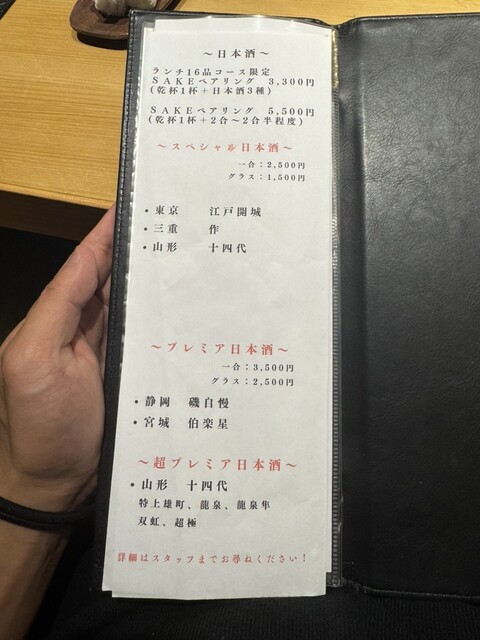 ～日本酒～
ランチ16品コース限定
SAKEペアリング 3,300円
(乾杯1杯＋日本酒3種)
SAKEペアリング 5,500円
(乾杯1杯＋2合～2合半程度)
～スペシャル日本酒～
一合：2,500円
グラス：1,500円
・東京 江戸開城
・三重 作
・山形 十四代
～プレミア日本酒～
一合：3,500円
グラス：2,500円
・静岡 磯自慢
・宮城 伯楽星
～超プレミア日本酒～
・山形 十四代
特上雄町、龍泉、龍泉隼
双虹、超極
詳細はスタッフまでお尋ねください！